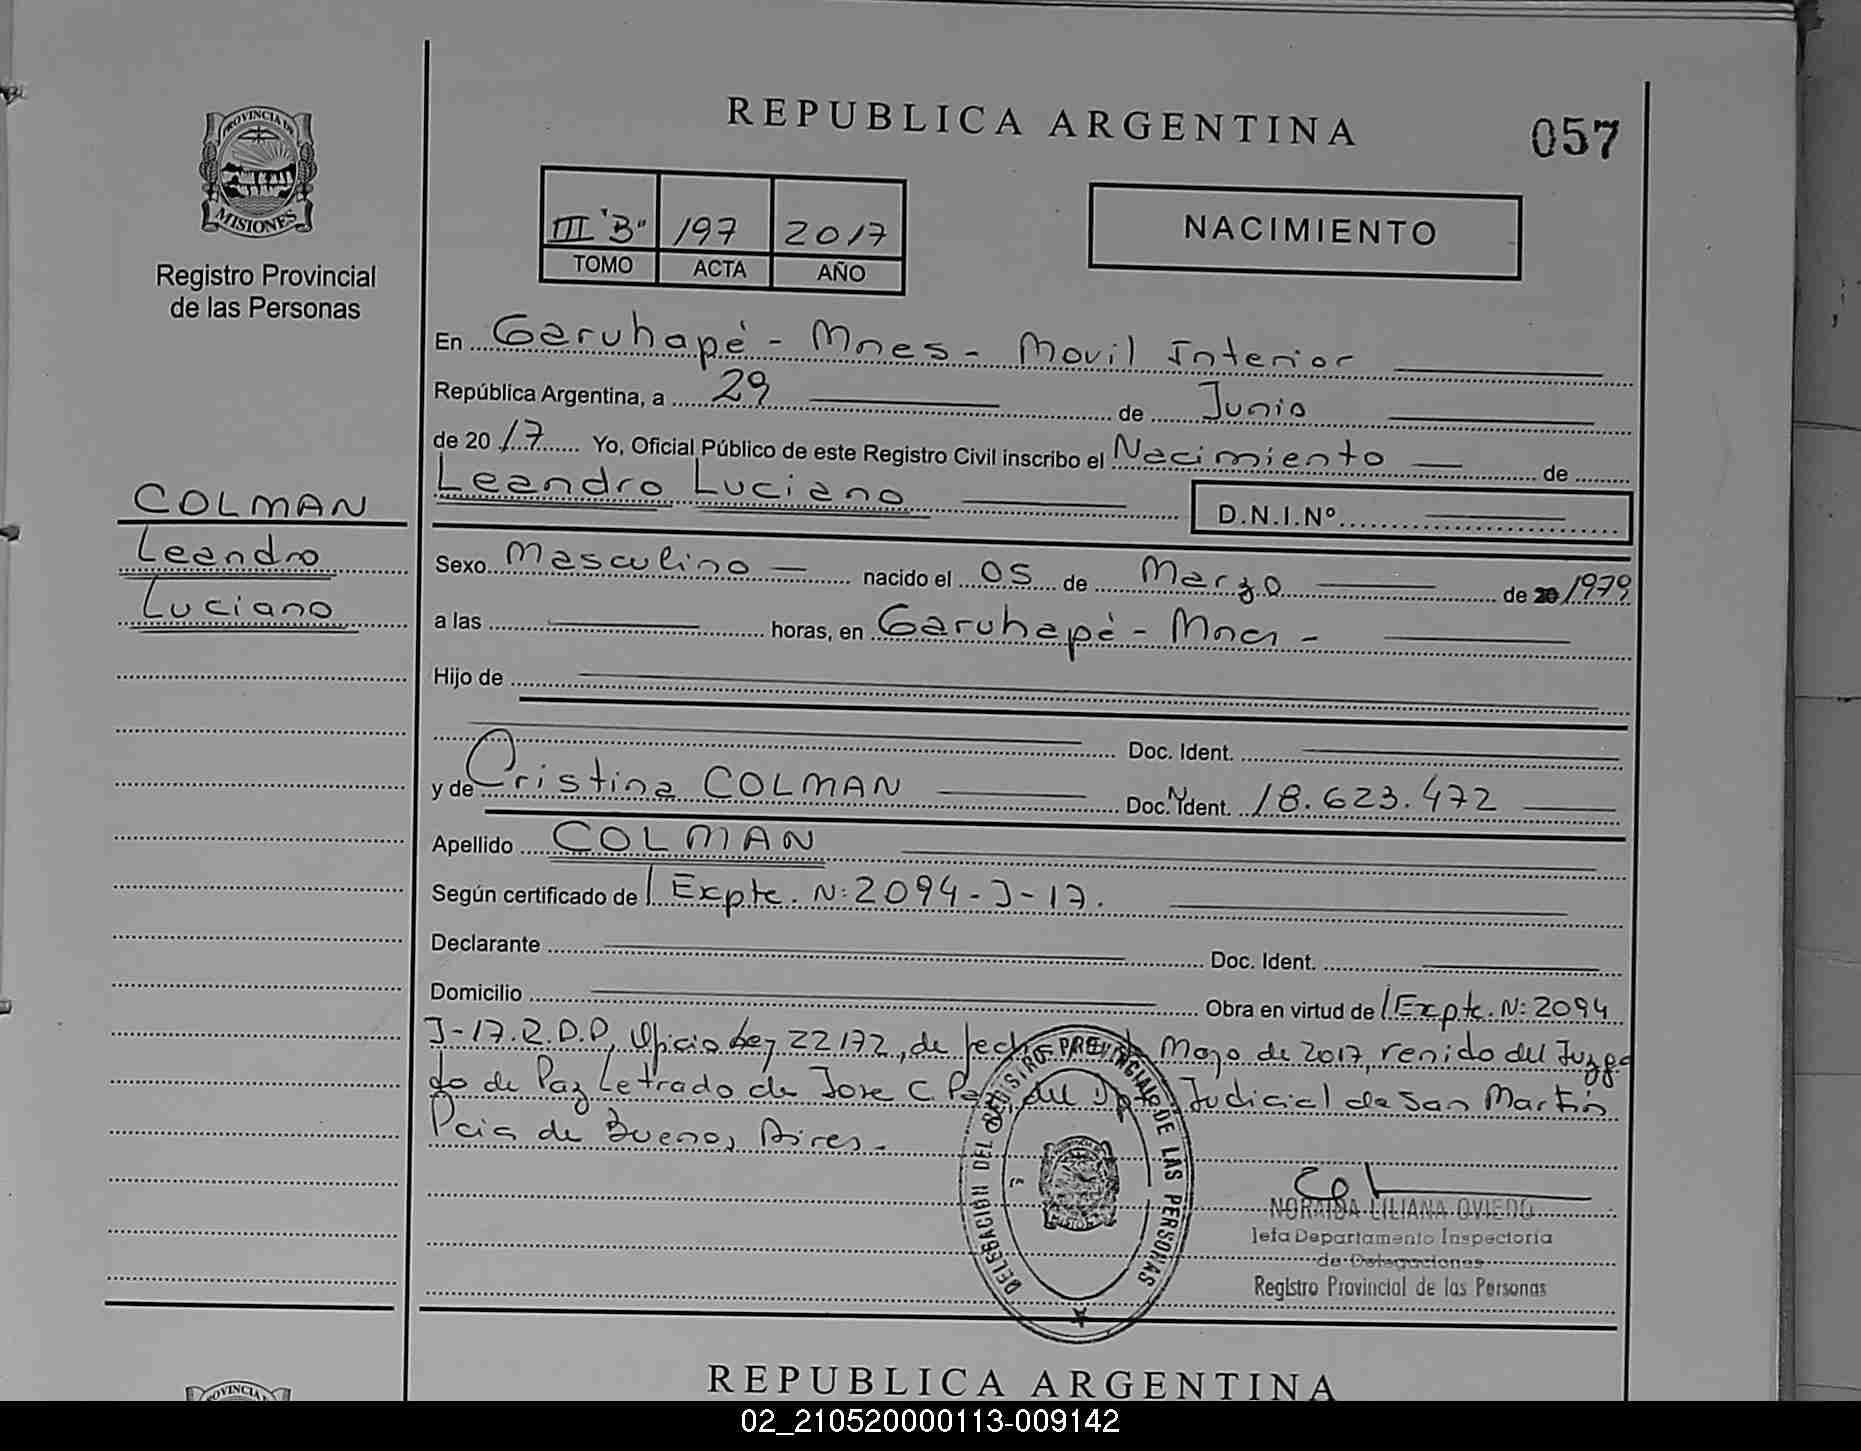 REPUBLICA ARGENTINA
057
PROVINCIA DE
MISIONES
Registro Provincial
de las Personas
III "B" 197 2017
TOMO ACTA AÑO
NACIMIENTO
En Garuhapé - Mnes - Movil Interior
República Argentina, a 29 de Junio
de 2017 Yo, Oficial Público de este Registro Civil inscribo el Nacimiento de
Leandro Luciano D.N.I.Nº
COLMAN
Leandro
Luciano
Sexo Masculino nacido el 05 de Marzo de 20/1979
a las horas, en Garuhapé - Mnes -
Hijo de
Doc. Ident.
y de Cristina COLMAN Doc. Ident. 18.623.472
Apellido COLMAN
Según certificado de Expte. N: 2094-J-17.
Declarante Doc. Ident.
Domicilio Obra en virtud de Expte. N: 2094
J-17.R.D.P, Oficio Ley 22172, de Mayo de 2017, del Juzga
do de Paz Letrado de Jose C. Judicial de San Martin
Pcia de Buenos Aires.-
DELEGACION DEL REGISTRO PROVINCIAL DE LAS PERSONAS
NORAIDA LILIANA OVIEDO
Jefa Departamento Inspectoria
de Delegaciones
Registro Provincial de las Personas
PROVINCIA
REPUBLICA ARGENTINA
02_210520000113-009142